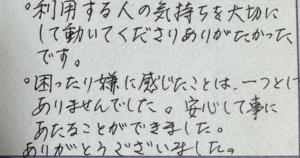 ○利用する人の気持ちを大切に
して動いてくださりありがたかった
です。
○困ったり嫌に感じたことは、一つと
ありませんでした。安心して事に
あたることができました。
ありがとうございました。